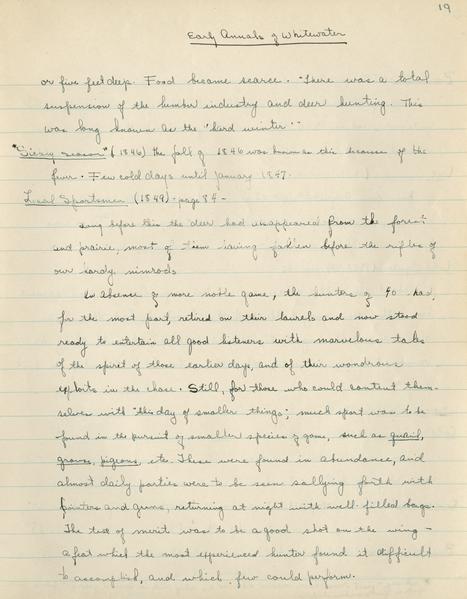 19
Early Annals of Whitewater
or five feet deep. Food became scarce. There was a total
suspension of the lumber industry and deer hunting. This
was long known as the "hard winter"
"Sickly season" (1846) the fall of 1846 was known as this because of the
fever. Few cold days until January 1847.
Local Sportsmen (1849) - page 84 -
Long before this the deer had disappeared from the forest
and prairie, most of them having fallen before the rifles of
our hardy nimrods
In absence of more noble game, the hunters of 40 had,
for the most part, retired on their laurels and now stood
ready to entertain all good listeners with marvelous tales
of the spirit of those earlier days, and of their wondrous
exploits in the chase. Still, for those who could content them-
selves with "this day of smaller things," much sport was to be
found in the pursuit of smaller species of game, such as quail,
grouse, pigeons, etc. These were found in abundance, and
almost daily parties were to be seen sallying forth with
pointers and guns, returning at night with well filled bags.
The test of merit was to be a good shot on the wing -
a feat which the most experienced hunter found it difficult
to accomplish, and which few could perform.